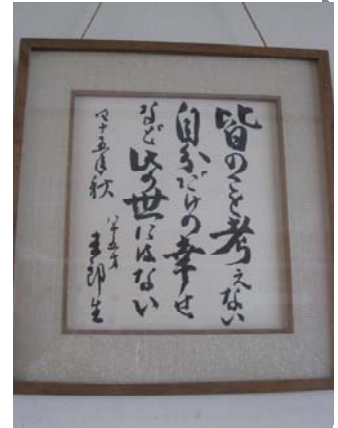 皆のこと考えない
自分だけの幸せ
など此の世にはない
四十五年秋 八十五才
圭郎生